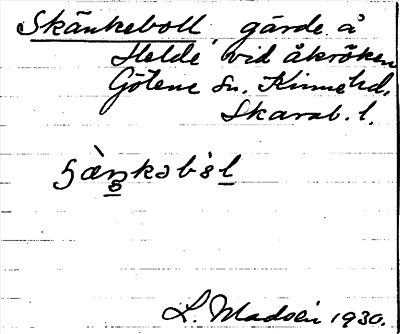 Skänkeboll, gärde å
Helde vid åkröken
Götene sn. Kinne hd.
Skarab. l.
L. Madsén 1930.